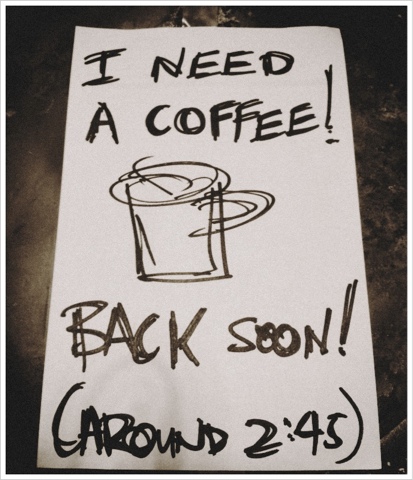 I NEED
A COFFEE!
BACK SOON!
(AROUND 2:45)